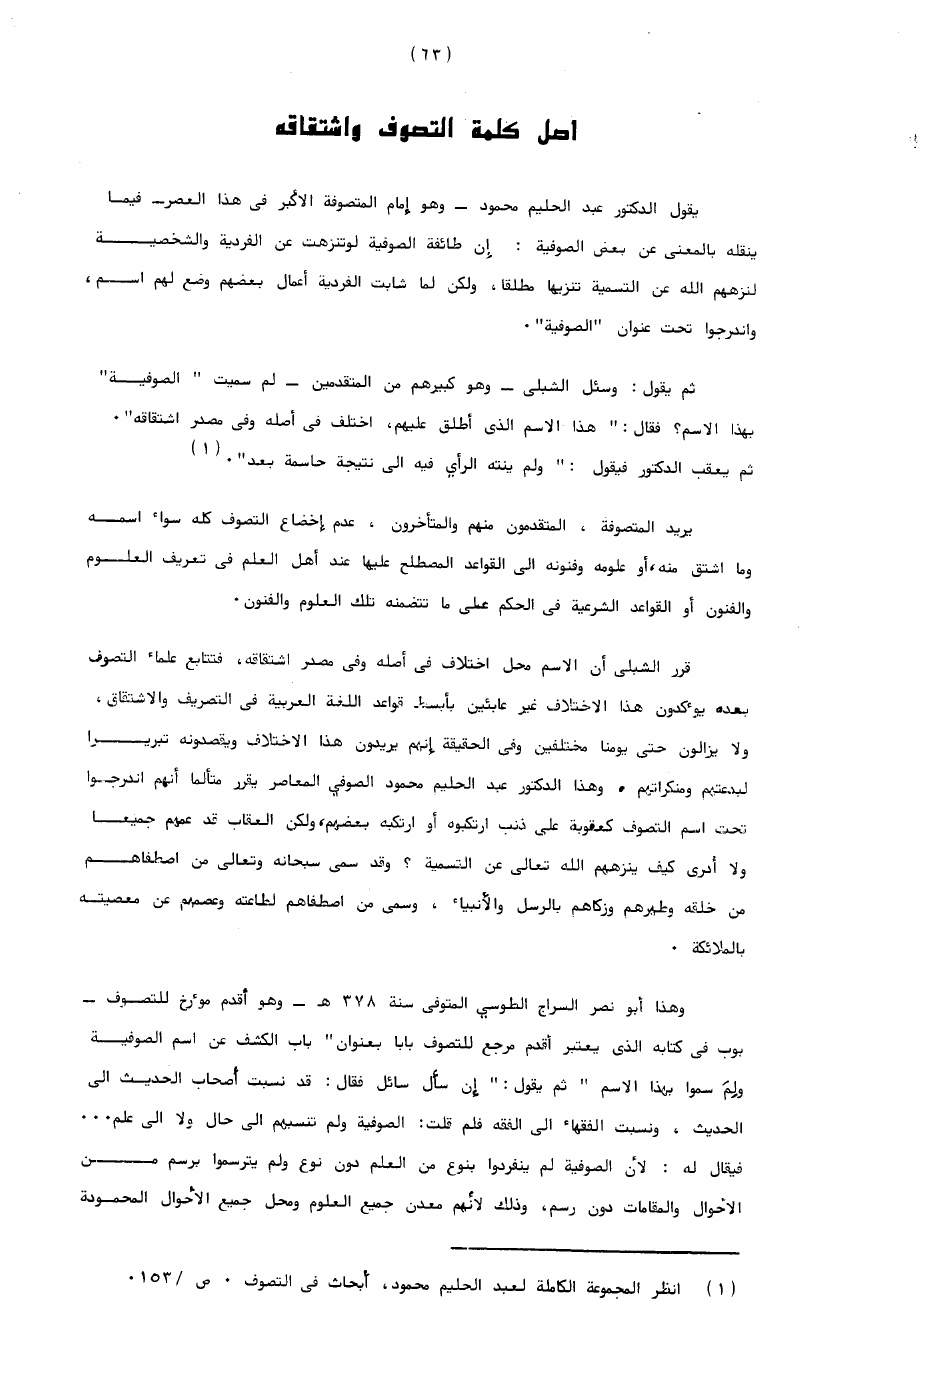 (٦٣)
اصل كلمة التصوف واشتقاقه
يقول الدكتور عبد الحليم محمود ــ وهو إمام المتصوفة الاكبر فى هذا العصر ــ فيما
ينقله بالمعنى عن بعض الصوفية : إن طائفة الصوفية لوتنزهت عن الفردية والشخصية
لنزههم الله عن التسمية تنزيها مطلقا، ولكن لما شابت الفردية أعمال بعضهم وضع لهم اسم،
واندرجوا تحت عنوان "الصوفية".
ثم يقول : وسئل الشبلى ــ وهو كبيرهم من المتقدمين ــ لم سميت " الصوفية"
بهذا الاسم؟ فقال :" هذا الاسم الذى أطلق عليهم، اختلف فى أصله وفى مصدر اشتقاقه".
ثم يعقب الدكتور فيقول :" ولم ينته الرأي فيه الى نتيجة حاسمة بعد".(١)
يريد المتصوفة ، المتقدمون منهم والمتأخرون ، عدم إخضاع التصوف كله سواء اسمه
وما اشتق منه،أو علومه وفنونه الى القواعد المصطلح عليها عند أهل العلم فى تعريف العلوم
والفنون أو القواعد الشرعية فى الحكم على ما تتضمنه تلك العلوم والفنون.
قرر الشبلى أن الاسم محل اختلاف فى أصله وفى مصدر اشتقاقه، فتتابع علماء التصوف
بعده يوءكدون هذا الاختلاف غير عابئين بأبسط قواعد اللغة العربية فى التصريف والاشتقاق،
ولا يزالون حتى يومنا مختلفين وفى الحقيقة إنهم يريدون هذا الاختلاف ويقصدونه تبريرا
لبدعتهم ومنكراتهم . وهذا الدكتور عبد الحليم محمود الصوفي المعاصر يقرر متألما أنهم اندرجوا
تحت اسم التصوف كعقوبة على ذنب ارتكبوه أو ارتكبه بعضهم،ولكن العقاب قد عمهم جميعا
ولا أدرى كيف ينزههم الله تعالى عن التسمية ؟ وقد سمى سبحانه وتعالى من اصطفاهم
من خلقه وطهرهم وزكاهم بالرسل والأنبياء ، وسمى من اصطفاهم لطاعته وعصمهم عن معصيته
بالملائكة .
وهذا أبو نصر السراج الطوسي المتوفى سنة ٣٧٨ هـ ــ وهو أقدم موءرخ للتصوف ــ
بوب فى كتابه الذى يعتبر أقدم مرجع للتصوف بابا بعنوان" باب الكشف عن اسم الصوفية
ولِمَ سموا بهذا الاسم " ثم يقول :" إن سأل سائل فقال : قد نسبت أصحاب الحديث الى
الحديث ، ونسبت الفقهاء الى الفقه فلم قلت: الصوفية ولم تنسبهم الى حال ولا الى علم...
فيقال له : لأن الصوفية لم ينفردوا بنوع من العلم دون نوع ولم يترسموا برسم من
الأحوال والمقامات دون رسم، وذلك لأنهم معدن جميع العلوم ومحل جميع الأحوال المحمودة
(١) انظر المجموعة الكاملة لعبد الحليم محمود، أبحاث فى التصوف . ص /١٥٣.